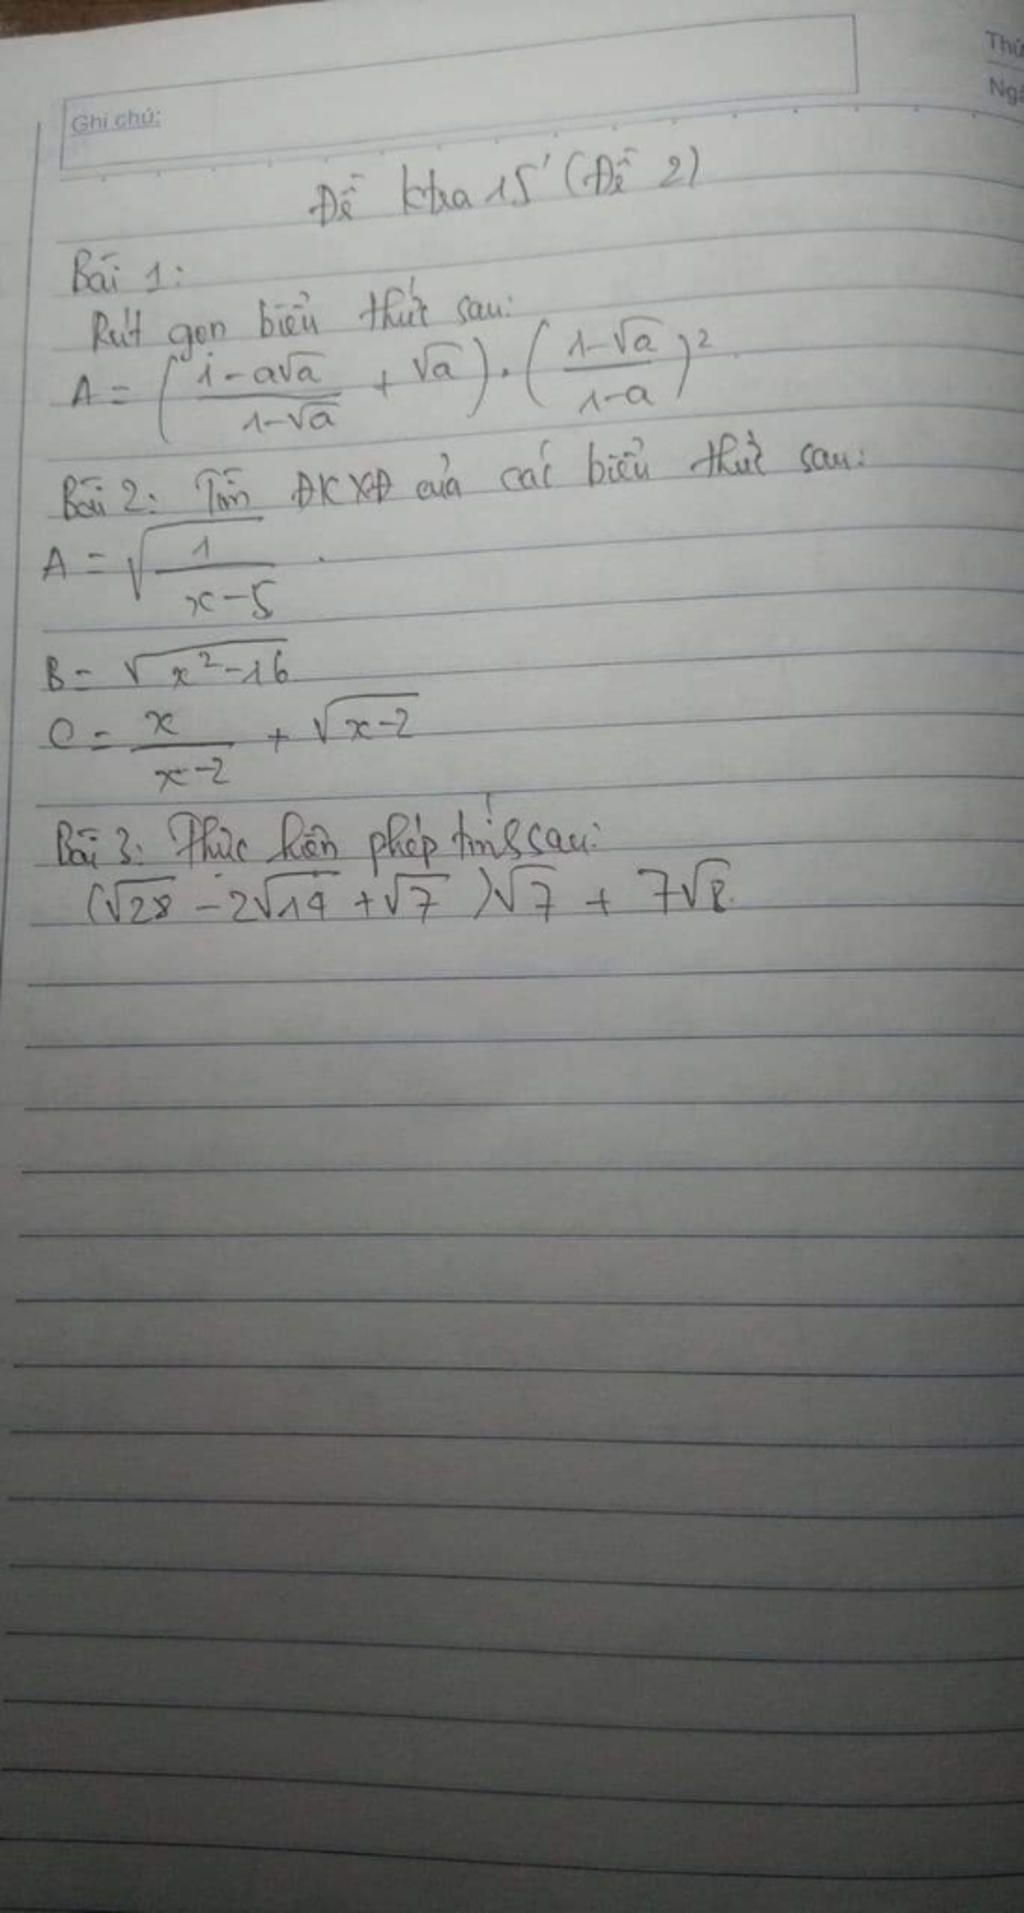 Ghi chú:
Thứ
Ngà
Đề ktra 15' (Đề 2)
Bài 1:
Rút gọn biểu thức sau:
A = ( (1 - a√a)/(1 - √a) + √a ) . ( (1 - √a)/(1 - a) )²
Bài 2: Tìm ĐKXĐ của các biểu thức sau:
A = √(1/(x - 5))
B = √(x² - 16)
C = x/(x - 2) + √(x - 2)
Bài 3: Thực hiện phép tính sau:
(√28 - 2√14 + √7)√7 + 7√8.